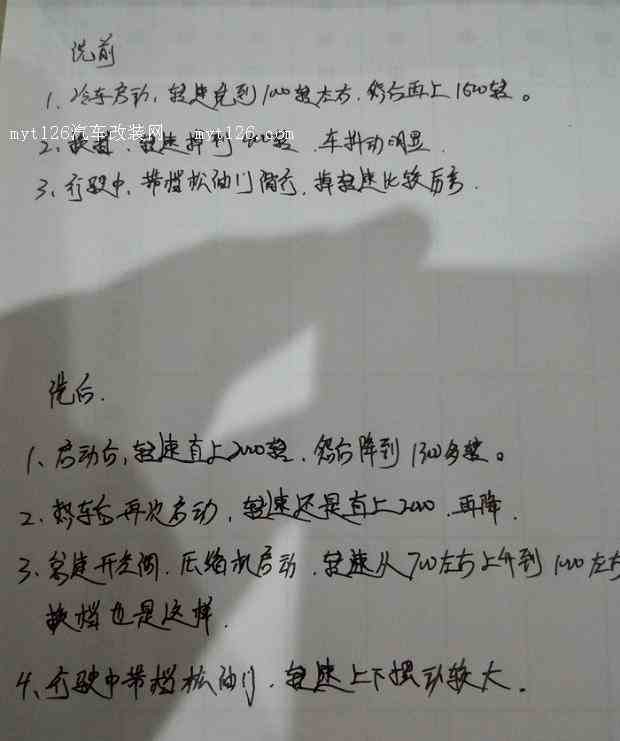 洗前
1、冷车启动,转速先到1000转左右,然后再上1500转。
myt126汽车改装网 myt126.com
2、换挡,转速掉到 车抖动明显
3、行驶中,带档松油门滑行,掉转速比较厉害.
洗后.
1、启动后,转速直上2000转,然后降到1300多转。
2、熱车后再次启动,转速还是直上2000,再降.
3、怠速开空调.压缩机启动,转速从700左右上升到1000左右
换档也是这样.
4、行驶中带档松油门,转速上下摆动较大。